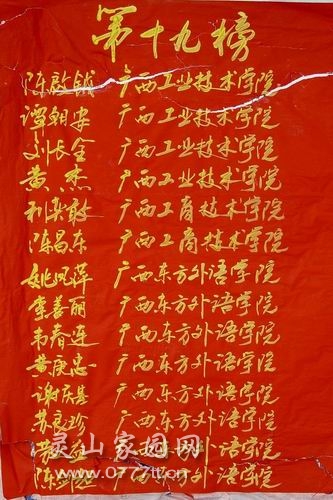 第十九榜
陈啟钺 广西工业技术学院
谭朝安 广西工业技术学院
刘长全 广西工业技术学院
黄杰 广西工业技术学院
利奕敢 广西工商技术学院
陈昌东 广西工商技术学院
姚凤萍 广西东方外语学院
李善丽 广西东方外语学院
韦春连 广西东方外语学院
黄庚忠 广西东方外语学院
谢庆县 广西东方外语学院
苏良珍 广西东方外语学院
广西东方外语学院
陈 广西东方外语学院
灵山家园网
www.0777lt.cn